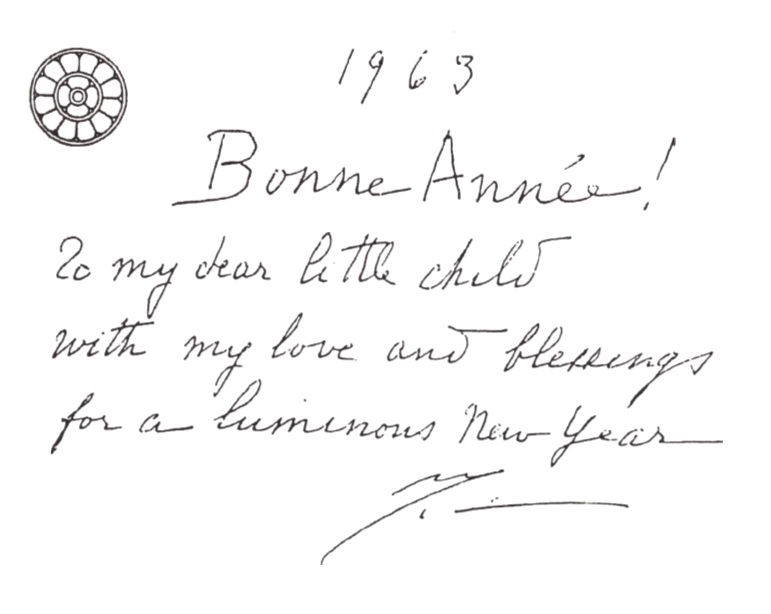 1963
Bonne Année!
To my dear little child
with my love and blessings
for a luminous New Year